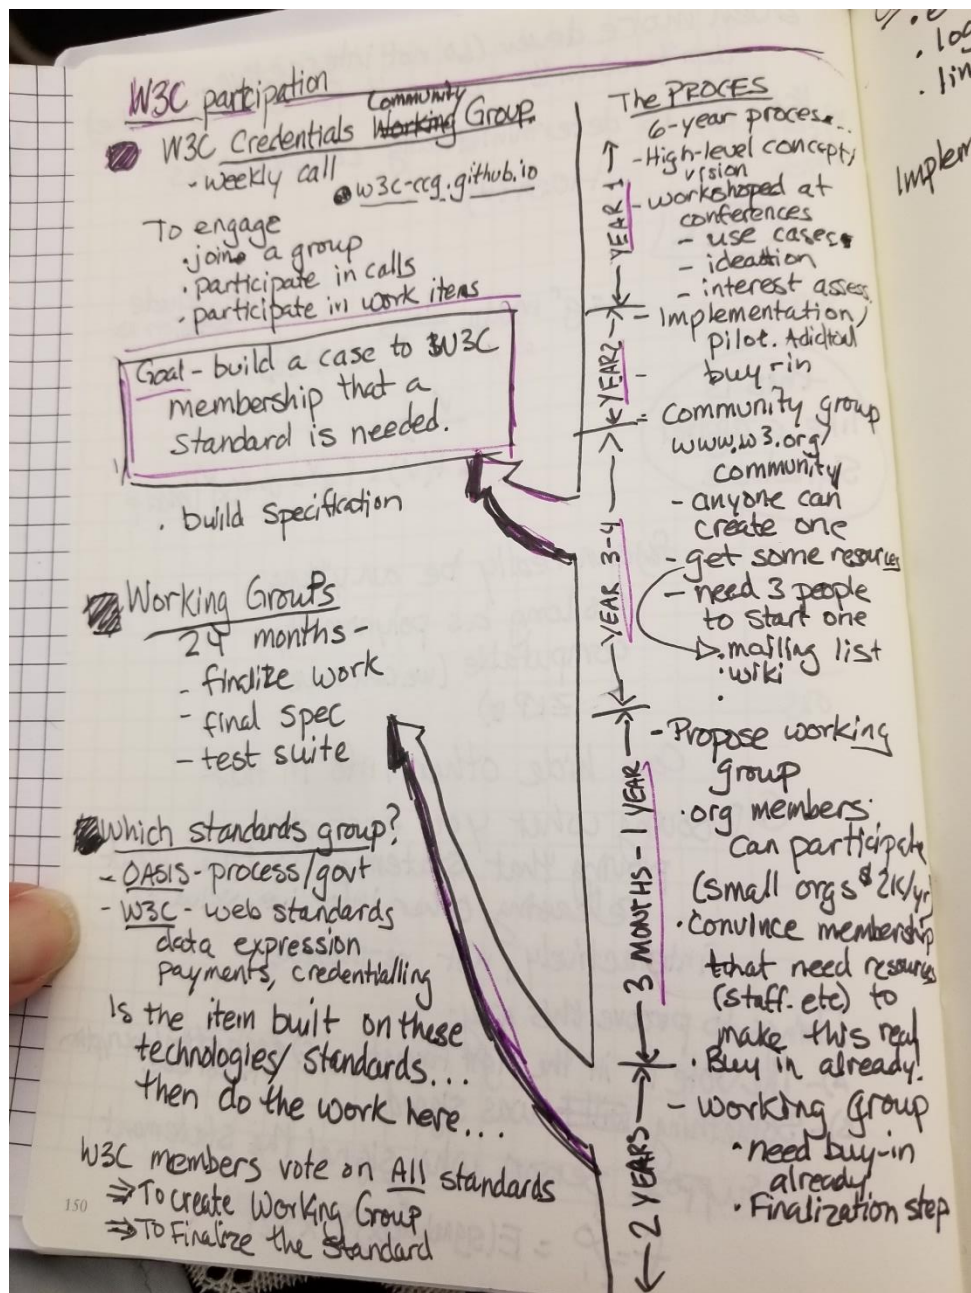 W3C participation
W3C Credentials Community Working Group.
- weekly call
w3c-ccg.github.io
To engage
• join a group
• participate in calls
• participate in work items
Goal - build a case to W3C
membership that a
standard is needed.
• build specification
Working Groups
24 months -
- finalize work
- final spec
- test suite
Which standards group?
- OASIS - process/govt
- W3C - web standards
data expression
payments, credentialling
Is the item built on these
technologies/standards...
then do the work here...
W3C members vote on All standards
⇒ To create Working Group
⇒ To Finalize the Standard
150
The PROCES
6-year proces...
YEAR 1
- High-level concept/
vision
- workshoped at
conferences
- use cases
- ideation
- interest assess
YEAR 2
- Implementation/
pilot.
buy-in
YEAR 3-4
- community group
www.w3.org/
community
- anyone can
create one
- get some resources
- need 3 people
to start one
• mailing list
• wiki
•
3 MONTHS - 1 YEAR
- Propose working
group
• org members
can participate
(small orgs $2K/yr)
• Convince membership
that need resources
(staff. etc) to
make this real
• Buy in already!
2 YEARS
- Working group
• need buy-in
already
• Finalization step
• log
• lin
Implem